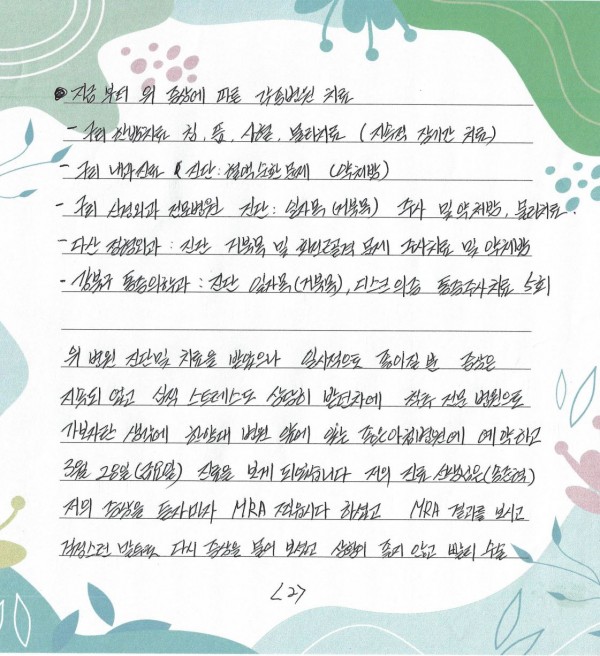 ● 지금부터 위 증상에 따른 각종병원 치료
- 구리 한방치료 침, 뜸, 사혈, 물리치료 (지속적 장기간 치료)
- 구리 내과진료 진단: 혈액순환문제 (약처방)
- 구리 신경외과 전문병원 진단: 일자목(거북목) 주사 및 약처방, 물리치료.
- 다산 정형외과: 진단 거북목 및 문제 주사치료 및 약처방
- 강북구 통증의학과: 진단 일자목(거북목), 디스크의증 통증주사치료 5회
위 병원 진단및 치료을 받았으나 일시적으로 좋아질 뿐 증상은
지속되 었고 심적 스트레스도 상당히 받던차에 척추 전문 병원으로
가보자란 생각에 한양대 병원 앞에 있는 좋은아침병원에 예약하고
3월 28일(금요일) 진료을 보게 되었습니다 저의 진료 선생님은
저의 증상을 듣자마자 MRA 찍읍시다 하셨고 MRA 결과를 보시고
걱정스런 말투로 다시 증상을 물어 보셨고 상황이 좋지 않고 빨리 수술
<2>